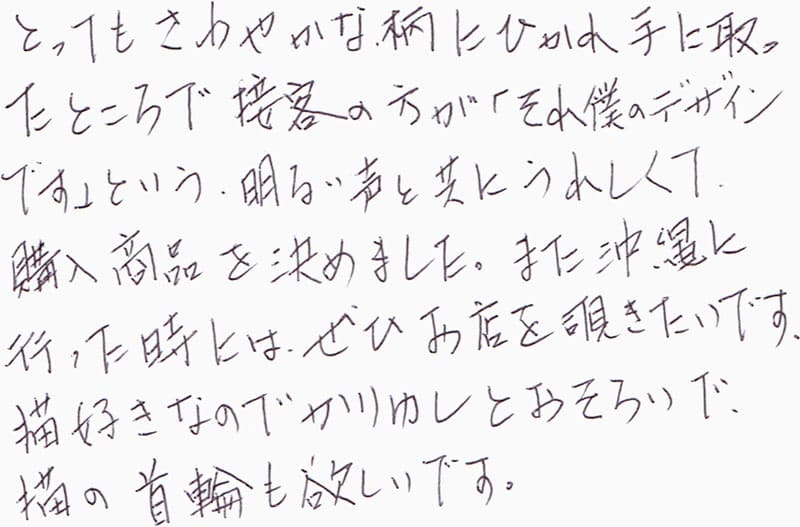 とってもさわやかな柄にひかれ手に取っ
たところで接客の方が「それ僕のデザイン
です」という、明るい声と共にうれしくて、
購入商品を決めました。また沖縄に
行った時には、ぜひお店を覗きたいです。
猫好きなのでかりゆしとおそろいで、
猫の首輪も欲しいです。